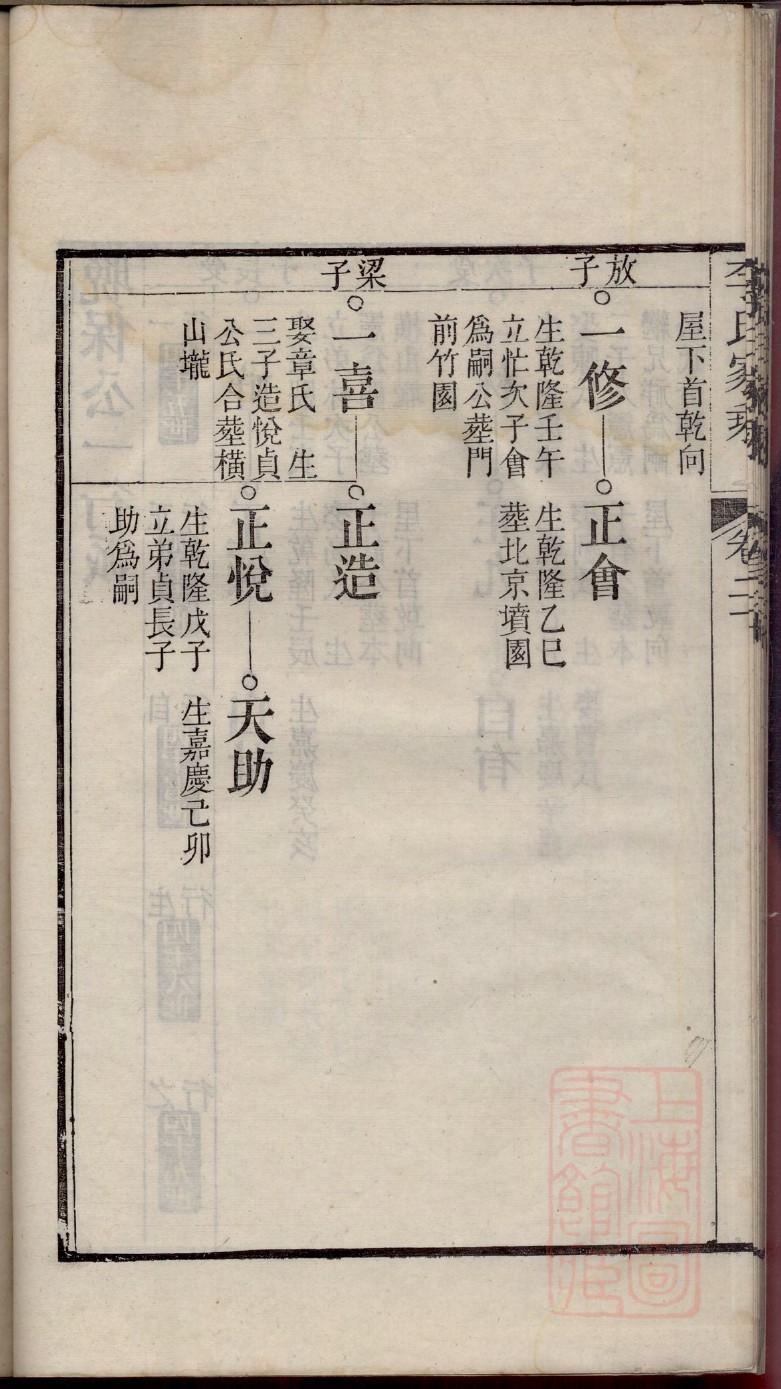 李氏家乘
卷二十
屋下首乾向
放子
一修
生乾隆壬午
立忙次子會
爲嗣公塟門
前竹園
正會
生乾隆乙巳
塟北京墳園
梁子
一喜
娶章氏　生
三子造悅貞
公氏合塟橫
山壠
正造
正悅
生乾隆戊子
立弟貞長子
助爲嗣
天助
生嘉慶己卯
上海圖
書館藏